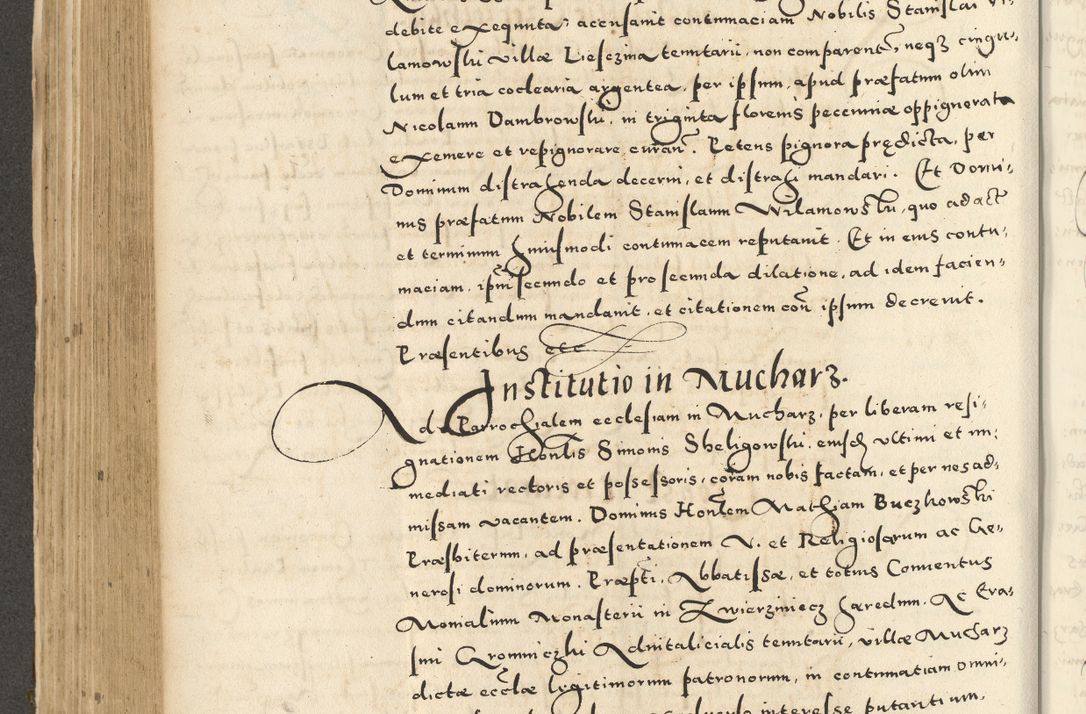 debite exequuta, accusauit contumaciam Nobilis Stanislai Vi-
lamowsky villæ Liesczina tenutarii, non comparentis, neq3 cingu-
lum et tria coclearia argentea, per ipsum, apud præfatum olim
Nicolaum Dambrowsky, in triginta florenis pecuniæ oppignorata
exemere et repignorare curan. Petens pignora prędicta, per
Dominum distrahenda decerni, et distrahi mandari. Et Domi-
nus præfatum Nobilem Stanislaum Wilamowsky, quo ad act
et terminum huiusmodi contumacem reputauit. Et in eius contu-
maciam, ipm secundo et pro secunda dilatione, ad idem facien-
dum citandum mandauit, et citationem con ipsum decreuit.
Præsentibus etc
Institutio in Mucharz.
Ad Parrochialem ecclesiam in Mucharz, per liberam resi-
gnationem Honlis Simonis Sheligowsky, eiusdem vltimi et im-
mediati rectoris et possessoris, coram nobis factam, et per nes ad-
missam vacantem. Dominus Honlem Mathiam Buczkowsky
Præsbiterum, ad præsentationem V. et Religiosarum ac Ge-
nerosi dominorum. Præpti, Abbatissæ, et totius Conuentus
Monialium Monasterii in Zwierziniecz hæredum. Ac Eras-
smi Gromniczky Aduitalicialis tenutarii, villæ Mucharz
dictæ ecclæ legitimorum patronorum, in contumatiam omni-
interesse putantium,